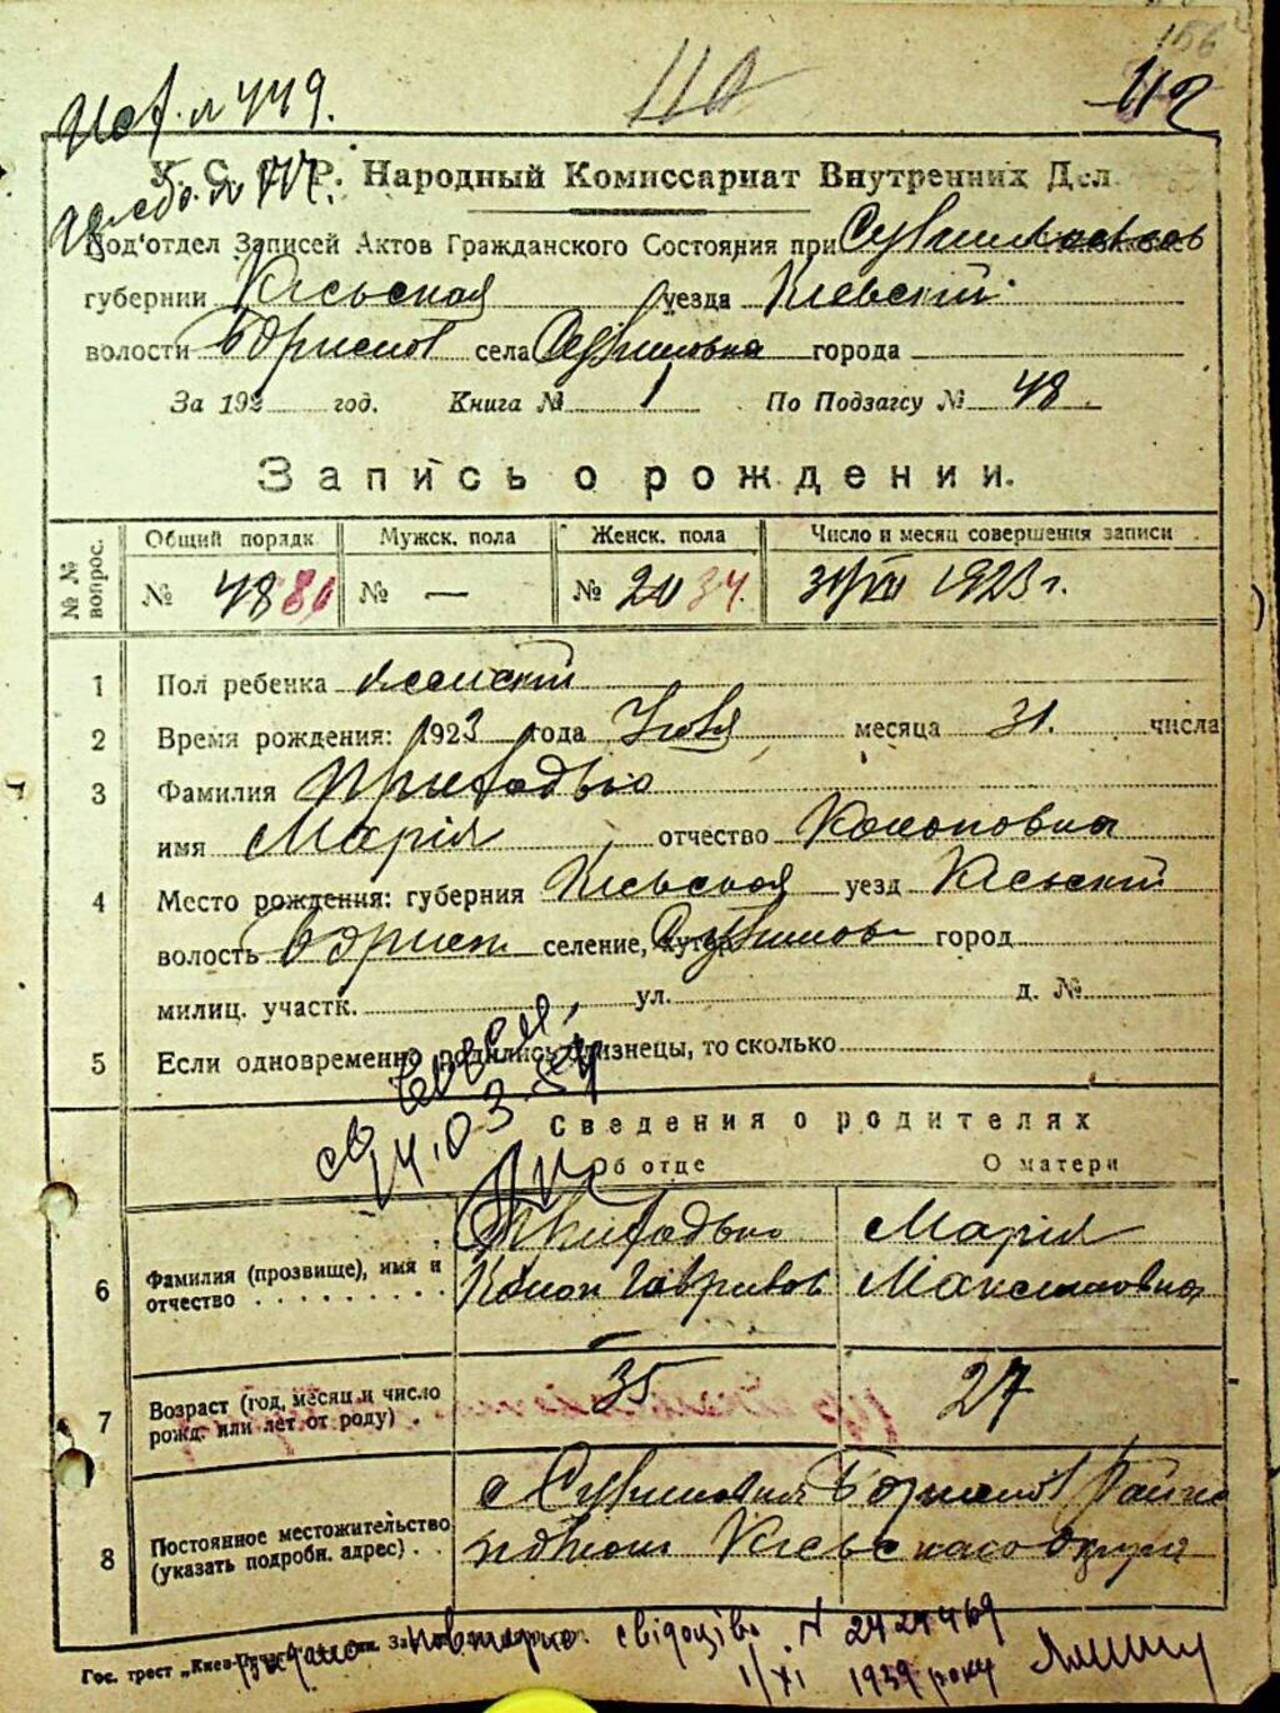 156
110
112
Ист. № 449.
У. С. С. Р. Народный Комиссариат Внутренних Дел
Под'отдел Записей Актов Гражданского Состояния при
губернии Киевская уезда Киевский
волости Бориспол села города
За 192 год. Книга № 1 По Подзагсу № 48.
Запись о рождении.
№ № вопрос. Общий порядк Мужск. пола Женск. пола Число и месяц совершения записи
№ 48 80 № — № 20 34. 31/VII 1923 г.
1 Пол ребенка женский
2 Время рождения: 1923 года Июля месяца 31. числа
3 Фамилия Приходько
имя Марія отчество Кононовна
4 Место рождения: губерния Киевская уезд Киевский
волость Борисп селение, хутор город
милиц. участк. ул. д. №
5 Если одновременно родились близнецы, то сколько
14.03.
Сведения о родителях
Об отце О матери
6 Фамилия (прозвище), имя и отчество Приходько Конон Гаврилов Марія Максимовна
7 Возраст (год, месяц и число рожд. или лет от роду) 35 27
8 Постоянное местожительство (указать подробн. адрес) с Борисполь Район
Киевского округа
Гос. трест „Киев-Печать“
Видано повторно свідоцтво № 2424469
1/XI 1939 року